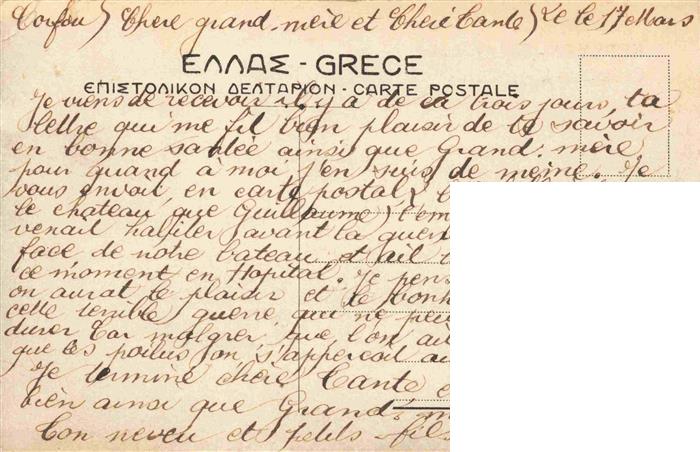 Corfou) Chere grand-mère et Cheré Tante) Le le 17 Mars
ΕΛΛΑΣ - GRECE
ΕΠΙΣΤΟΛΙΚΟΝ ΔΕΛΤΑΡΙΟΝ - CARTE POSTALE
Je viens de recevoir il y a de ca trois jours, ta
lettre qui me fit bien plaisir de te savoir
en bonne santée ainsi que Grand-mère
pour quand à moi j'en suis de meme. Je
vous envoi, en carte postal
le chateau, que Guillaume) l'em
venait habiter avant la guer
face de notre bateau et
ce moment en Hopital. Je pens
on aurat le plaisir et le bonh
cette terrible guerre qui ne peu
durer Car malgrer que l'on
que les poilus on s'apercoit
Je termine chère Tante e
bien ainsi que Grand-m
Ton neveu et petits-fils